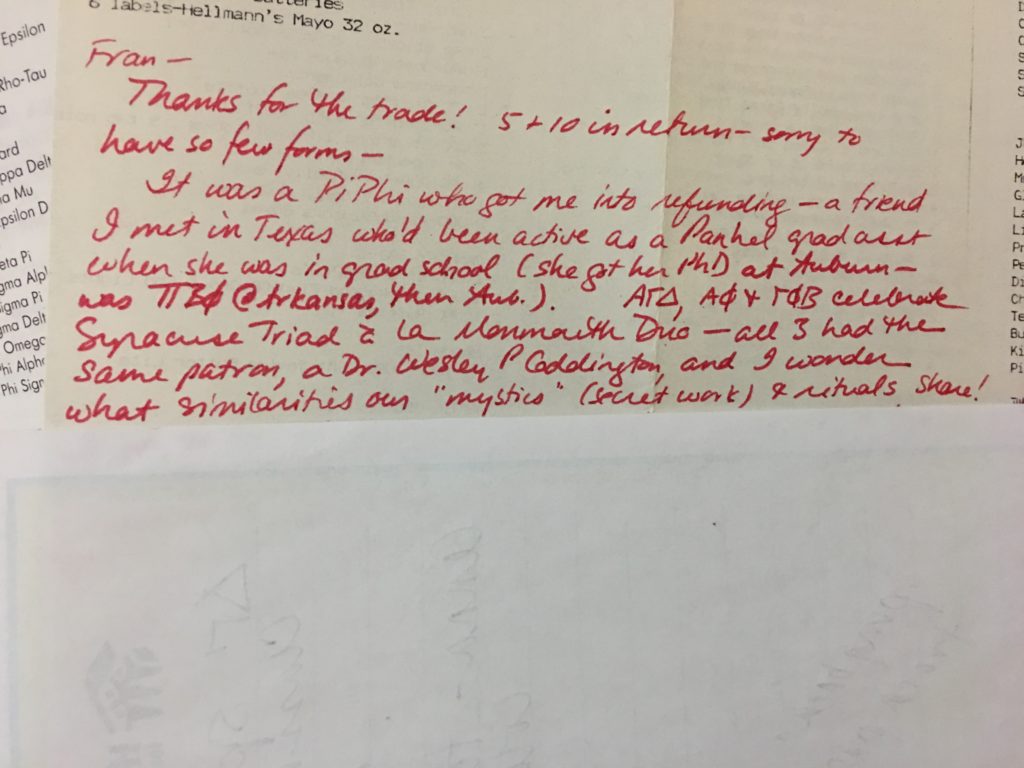 Batteries
6 labels-Hellmann's Mayo 32 oz.
Fran —
Thanks for the trade! 5 + 10 in return — sorry to
have so few forms —
It was a PiPhi who got me into refunding — a friend
I met in Texas who'd been active as a Panhel grad asst
when she was in grad school (she got her PhD at Auburn —
was ΠΒΦ @ Arkansas, then Aub.). ΑΓΔ, ΑΦ & ΓΦΒ celebrate
Syracuse Triad à la Monmouth Duo — all 3 had the
same patron, a Dr. Wesley P Coddington, and I wonder
what similarities our "mystics" (secret work) & rituals share!
Epsilon
Rho-Tau
a
ard
ppa Delt
a Mu
psilon D
eta Pi
gma Alp
igma Pi
gma Delt
Omega
Phi Alpha
Phi Sigm
J
H
M
G
L
L
P
P
D
C
T
B
K
P